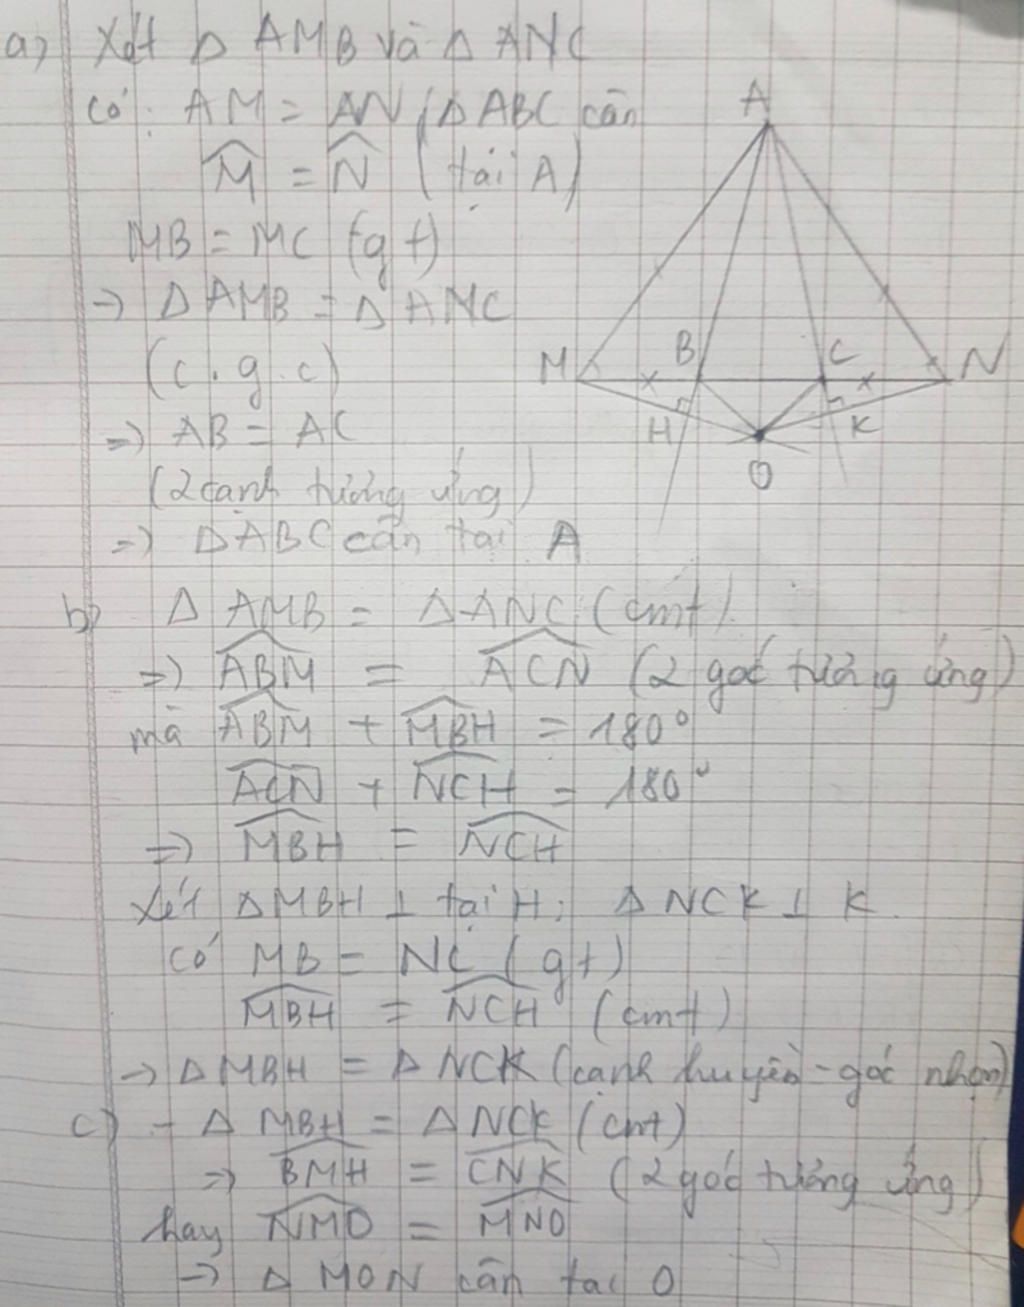 a) Xét Δ AMB và Δ ANC
Có: AM = AN (Δ ABC cân
M̂ = N̂ (tại A)
MB = MC (gt)
→ Δ AMB = Δ ANC
(c.g.c)
=) AB = AC
(2 cạnh tương ứng)
=) ΔABC cân tại A
A
M B C N
H K
O
b) Δ AMB = Δ ANC (cmt)
=) ABM = ACN (2 góc tương ứng)
mà ABM + MBH = 180°
ACN + NCH = 180°
=) MBH = NCH
Xét ΔMBH ⊥ tại H; ΔNCK ⊥ K
Có MB = NC (gt)
MBH = NCH (cmt)
→ Δ MBH = Δ NCK (cạnh huyền - góc nhọn)
c) - Δ MBH = Δ NCK (cmt)
=) BMH = CNK (2 góc tương ứng)
hay NMO = MNO
→ Δ MON cân tại O